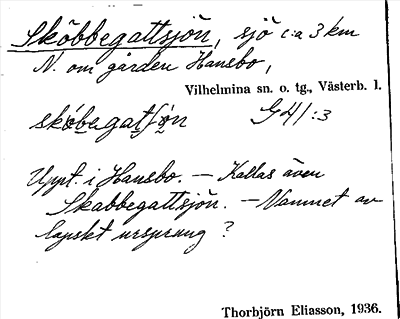 Sköbbegattsjön, sjö c:a 3 km
N. om gården Hansbo,
Vilhelmina sn. o. tg., Västerb. l.
sköbegatʃön G41:3
Uppt. i Hansbo. — Kallas även
Skabbegattsjön. — Namnet av
lapskt ursprung?
Thorbjörn Eliasson, 1936.